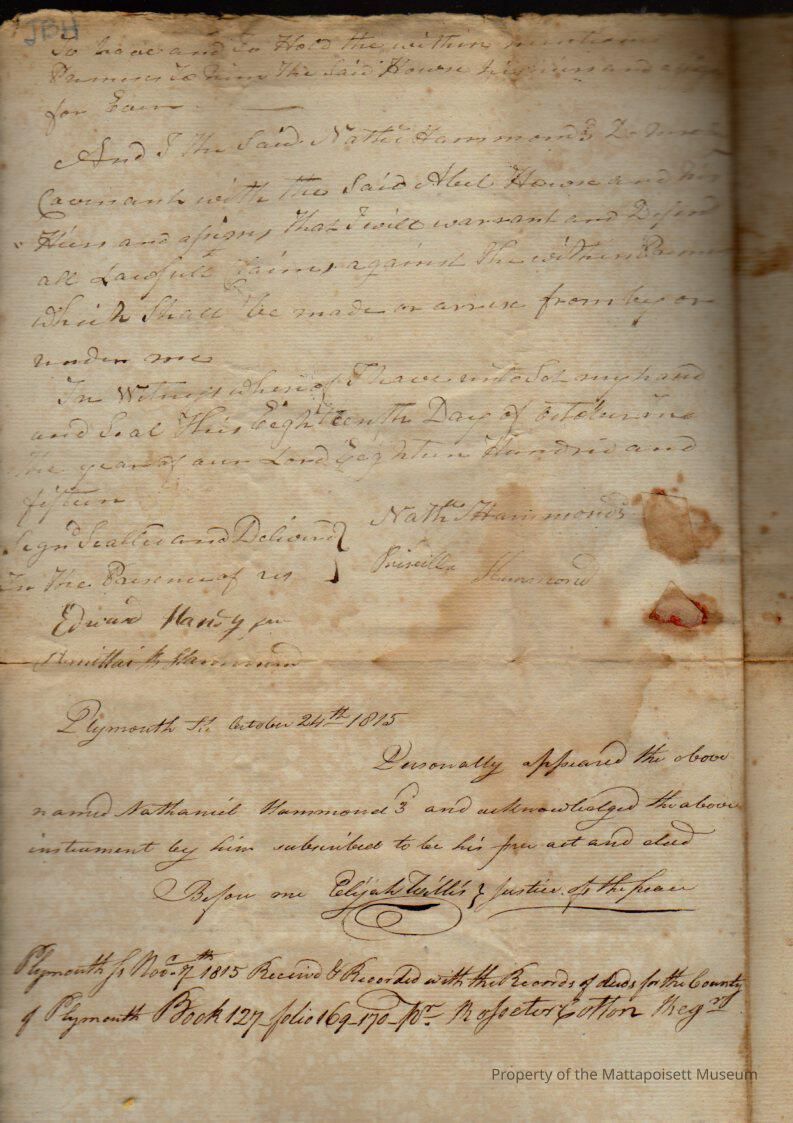 JBH
To have and to Hold the within mentioned
Premises to him the Said Howse his heirs and assigns
for Ever
And I the Said Nathl Hammond 3d Do hereby
Covenant with the Said Abel Howse and his
Heirs and assigns, that I will warrant and Defend
all Lawfull Claims against the within Premises
which Shall be made or arise from by or
under me
In Witness whereof I have unto Set my hand
and Seal This Eighteenth Day of October in
the year of our Lord Eighteen Hundred and
fifteen
Signd Sealled and Deliverd
In The Presence of us
Nathll Hammond 3
Priscilla Hammond
Edward Handy jur
Hammond
Plymouth Ss October 24th 1815
Personally appeared the above
named Nathaniel Hammond 3d and acknowledged the above
instrument by him subscribed to be his free act and deed
Before me Elijah Willis } Justice of the peace
Plymouth Ss Novr 7th 1815 Received & Recorded with the Records of deeds for the County
of Plymouth Book 127 folio 169-170 - pr. Rosseter Cotton Regr
Property of the Mattapoisett Museum